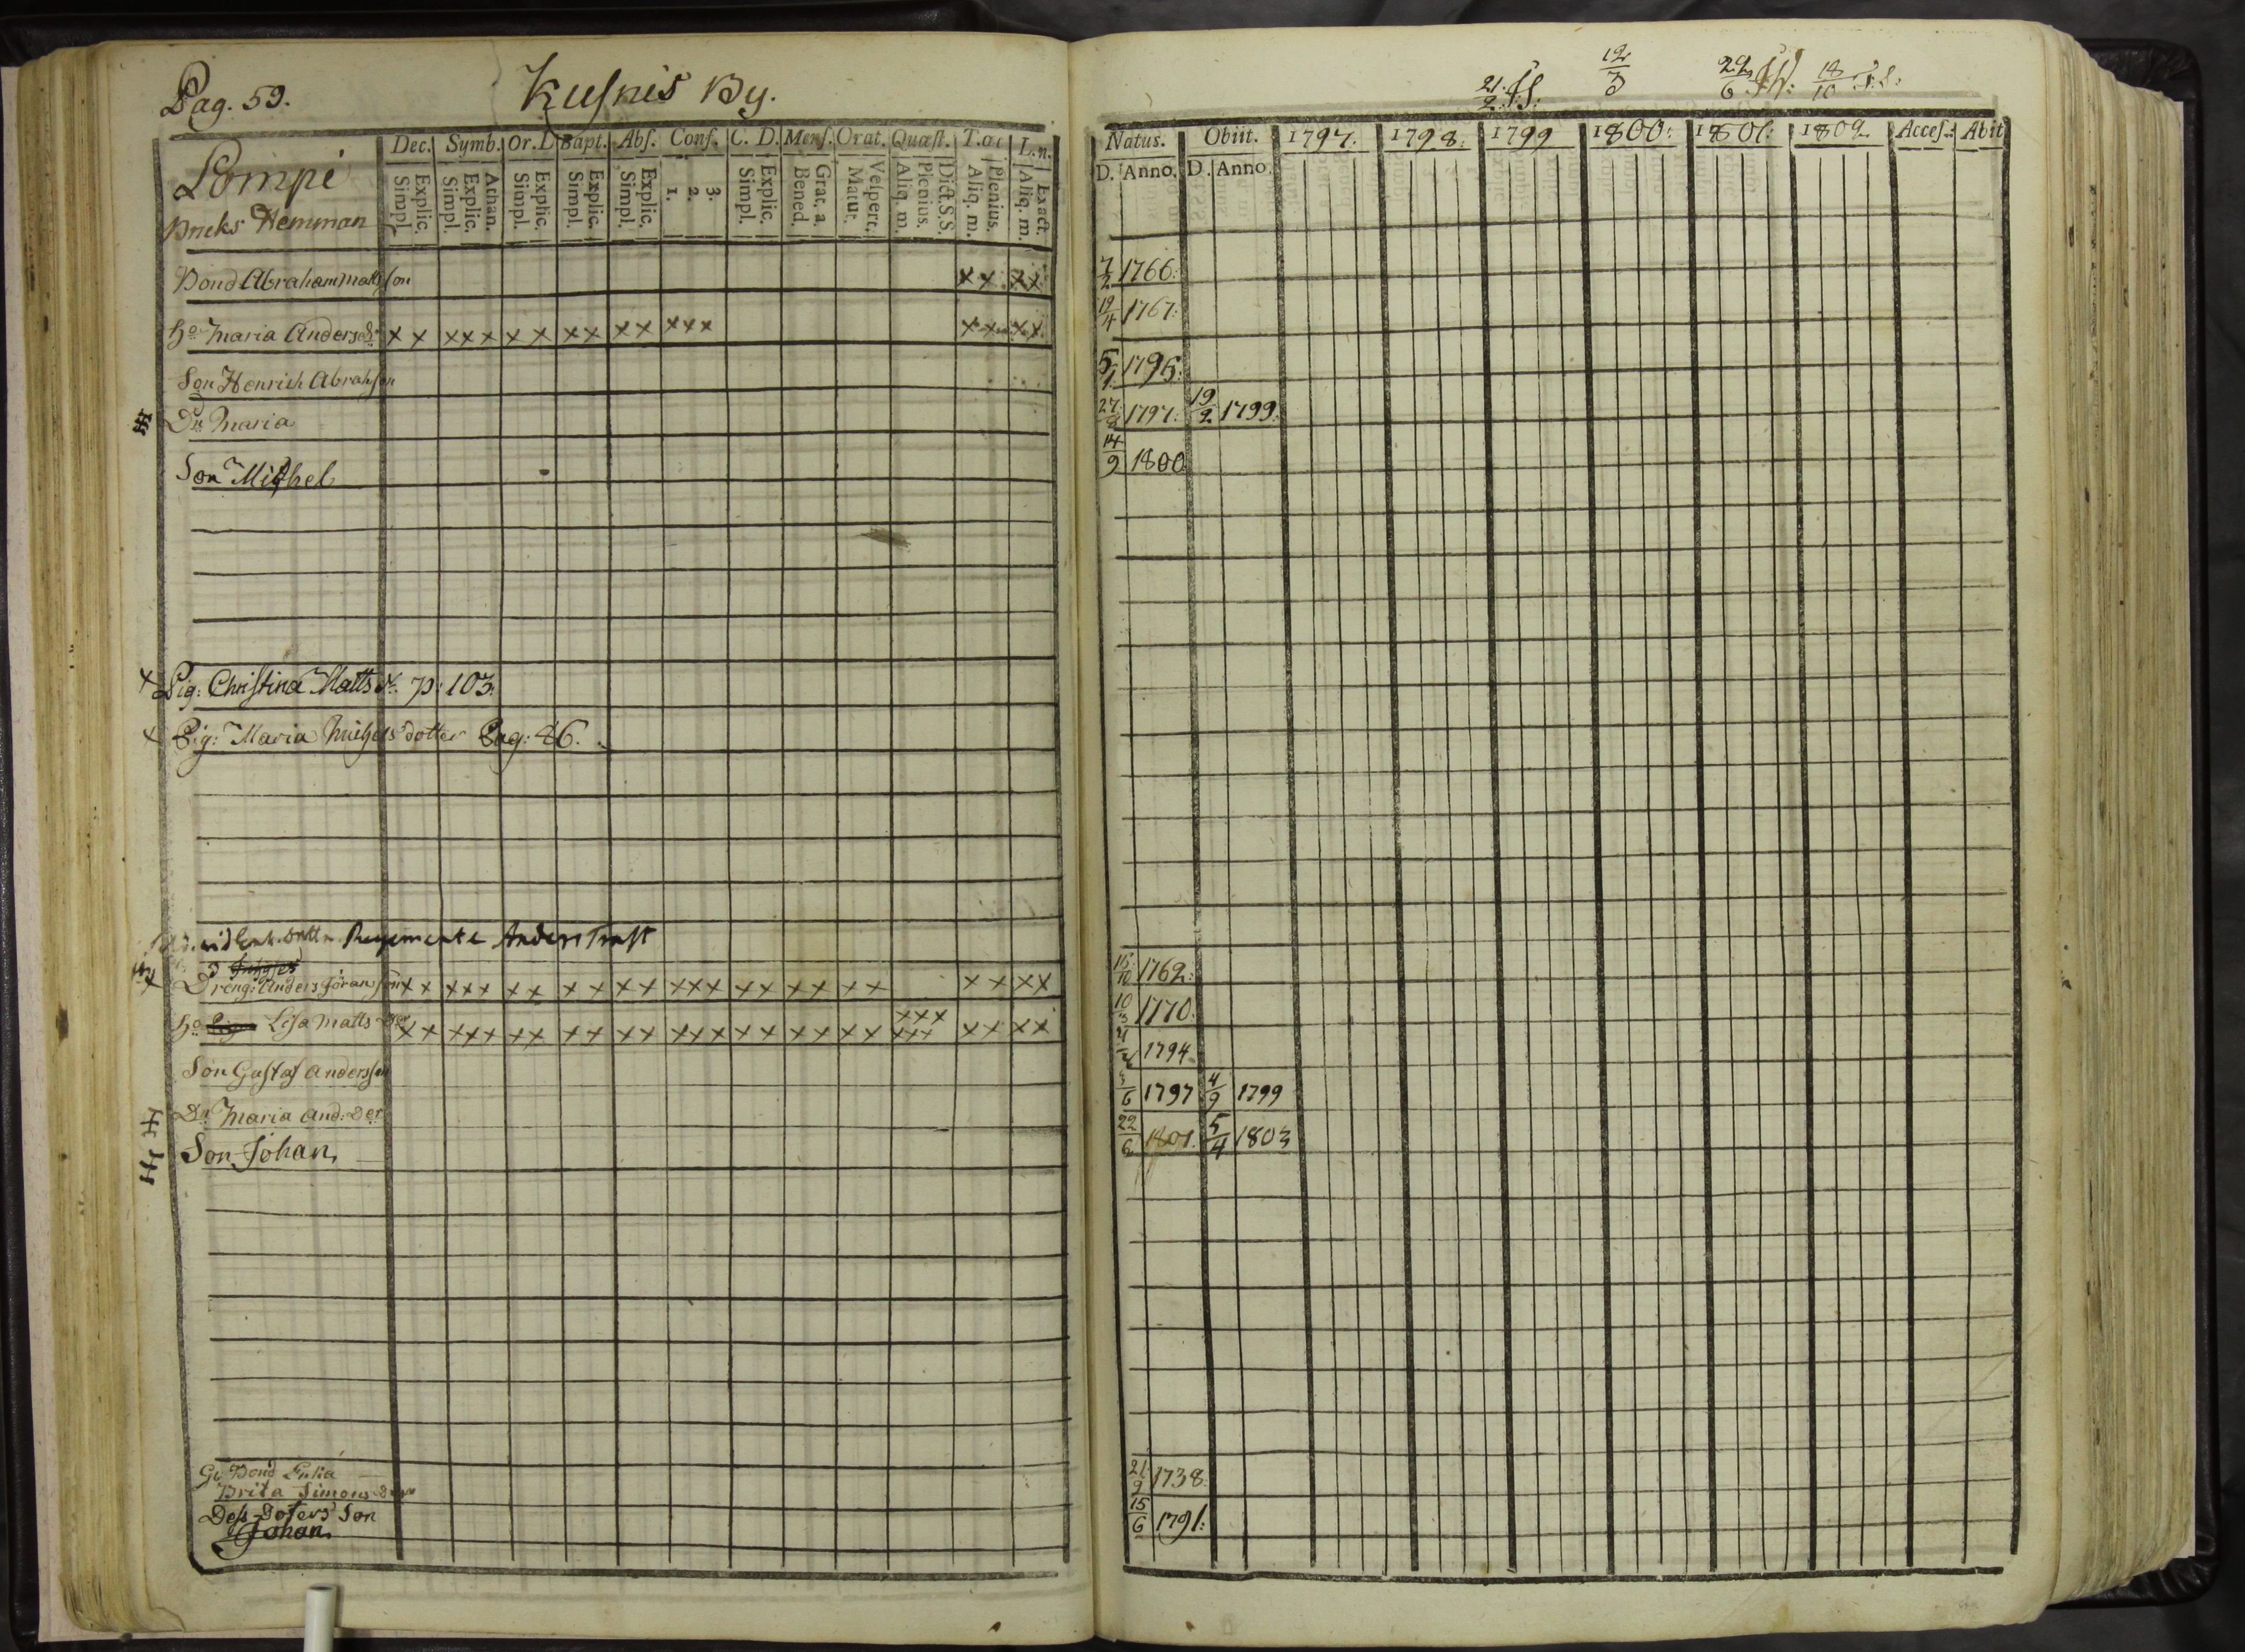 Pag. 59. Kusnis By.
Lompi
Bruks Hemman
Dec. Symb. Or.D Bapt. Abs. Conf. C. D. Mens. Orat. Quæst. T.ac L.n.
Explic. Simpl. Athan. Explic. Simpl. Explic. Simpl. Explic. Simpl. Explic. Simpl. 3. 2. 1. Explic. Simpl. Grat. a. Bened. Vespert. Matut. Dict.S.S. Plenius. Aliq. m. Plenius. Aliq. m. Exact. Aliq. m.
Bond Abraham Mattsson x x x x
Ho Maria Anders dr x x x x x x x x x x x x x x x x x x
Son Henrich Abrahsson
Dr Maria
Son Mithel
x Pig: Christina Matts dr. p: 103.
x Pig: Maria Michels dotter Pag: 46.
Regemente Anders Trast
Dreng: Anders Jöransson x x x x x x x x x x x x x x x x x x x x x x x x
Ho Lisa Matts Der x x x x x x x x x x x x x x x x x x x x x x x x x x x x x x
Son Gustaf Andersson
Dr Maria And: Der
Son Johan
Bond
Brita Simons
Dess Doters Son
Johan
21/2 12/3 22/6 18/10
Natus. Obiit. 1797. 1798. 1799 1800: 1801: 1802 Acces.: Abit
D. Anno. D. Anno.
7/2 1766:
19/4 1767:
5/1 1795:
27/8 1797: 19/2 1799:
14/9 1800
15/10 1762:
10/3 1770.
1794
5/6 1797 4/9 1799
22/6 1801. 5/4 1803
21/9 1738
15/6 1791: